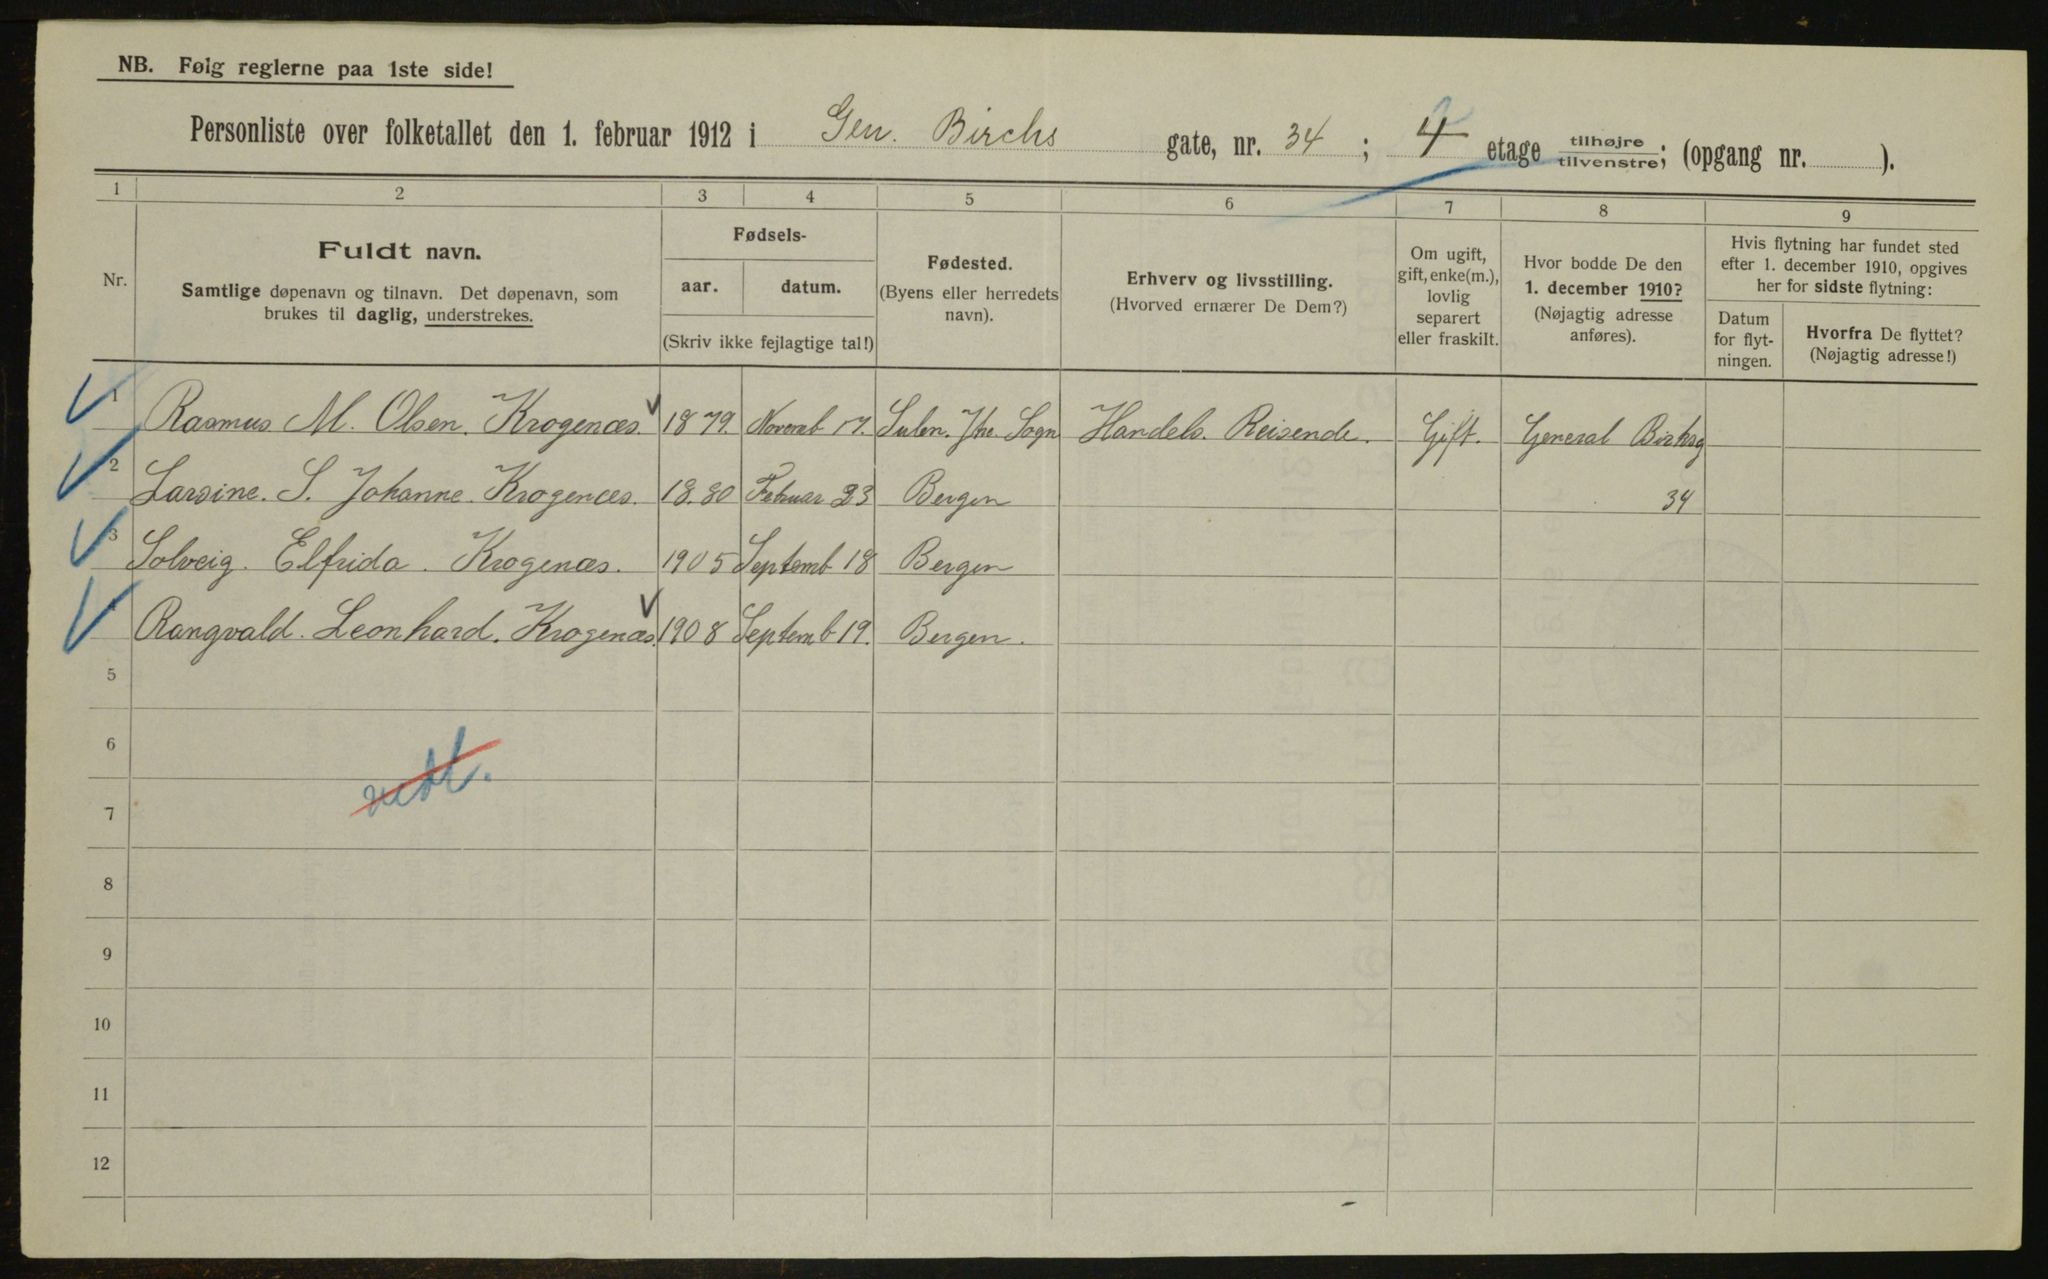 NB. Følg reglerne paa 1ste side!
Personliste over folketallet den 1. februar 1912 i Gen. Birchs gate, nr. 34 ; 4 etage tilhøjre/tilvenstre; (opgang nr. ........ ).
1 2 3 4 5 6 7 8 9
Nr.
Fuldt navn.
Samtlige døpenavn og tilnavn. Det døpenavn, som
brukes til daglig, understrekes.
Fødsels-
aar. datum.
(Skriv ikke fejlagtige tal!)
Fødested.
(Byens eller herredets
navn).
Erhverv og livsstilling.
(Hvorved ernærer De Dem?)
Om ugift,
gift, enke(m.),
lovlig
separert
eller fraskilt.
Hvor bodde De den
1. december 1910?
(Nøjagtig adresse
anføres).
Hvis flytning har fundet sted
efter 1. december 1910, opgives
her for sidste flytning:
Datum
for flyt-
ningen.
Hvorfra De flyttet?
(Nøjagtig adresse!)
1 Rasmus M. Olsen. Krogenæs. 1879. Novemb 17. Sulen. Sogn Handels. Reisende. Gift. General Birksg
2 Larsine. S. Johanne. Krogenæs. 18.80 Februar 23 Bergen 34
3 Solveig. Elfrida. Krogenæs. 1905 Septemb 18 Bergen
4 Rangvald. Leonhard. Krogenæs. 1908 Septemb 19. Bergen.
5
6
7
8
9
10
11
12